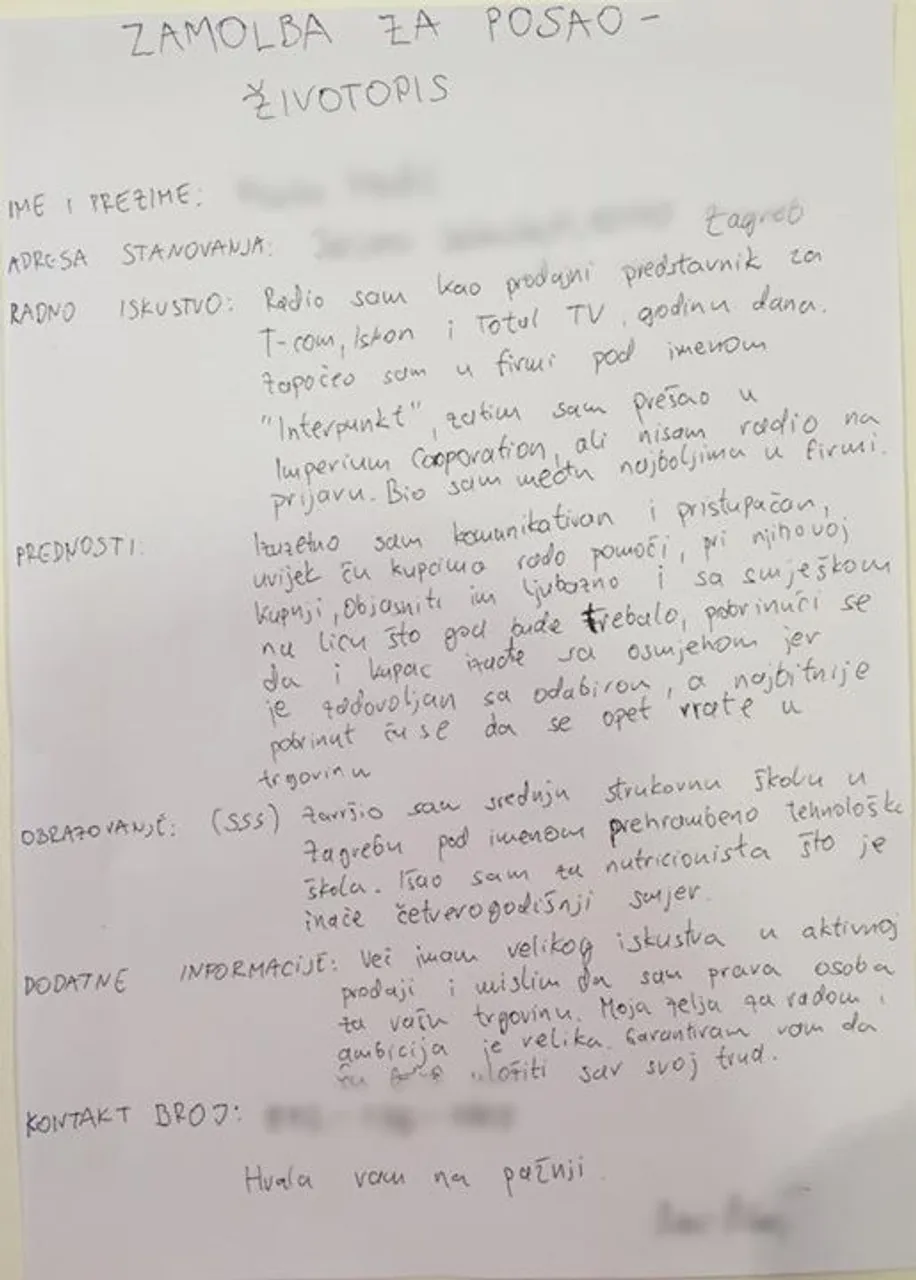 ZAMOLBA ZA POSAO -
ŽIVOTOPIS
IME I PREZIME:
ADRESA STANOVANJA: Zagreb
RADNO ISKUSTVO: Radio sam kao prodajni predstavnik za
T-com, Iskon i Total TV, godinu dana.
Započeo sam u firmi pod imenom
"Interpunkt", zatim sam prešao u
Imperium Cooporation, ali nisam radio na
prijavu. Bio sam među najboljima u firmi.
PREDNOSTI: Izuzetno sam komunikativan i pristupačan,
uvijek ću kupcima rado pomoći, pri njihovoj
kupnji, Objasniti im ljubazno i sa smješkom
na licu što god bude trebalo, pobrinući se
da i kupac izađe sa osmjehom jer
je zadovoljan sa odabirom, a najbitnije
pobrinut ću se da se opet vrate u
trgovinu
OBRAZOVANJE: (SSS) Završio sam srednju strukovnu školu u
Zagrebu pod imenom prehrambeno tehnološka
škola. Išao sam za nutricionista što je
inače četverogodišnji smjer.
DODATNE INFORMACIJE: Već imam velikog iskustva u aktivnoj
prodaji i mislim da sam prava osoba
za vašu trgovinu. Moja želja za radom i
ambicija je velika. Garantiram vam da
ću uložiti sav svoj trud.
KONTAKT BROJ:
Hvala vam na pažnji.